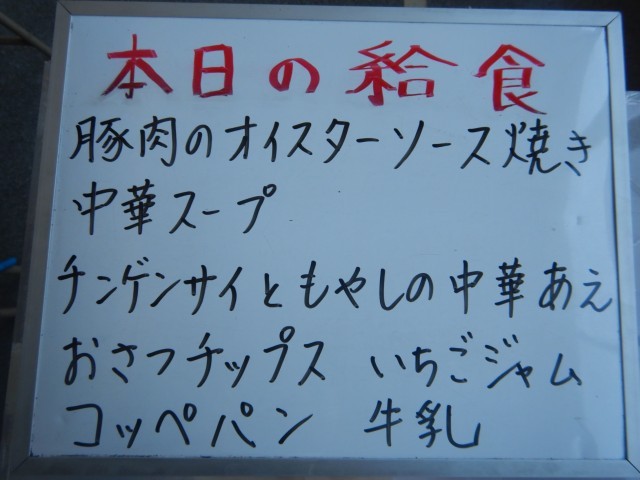 本日の給食
豚肉のオイスターソース焼き
中華スープ
チンゲンサイともやしの中華あえ
おさつチップス いちごジャム
コッペパン 牛乳